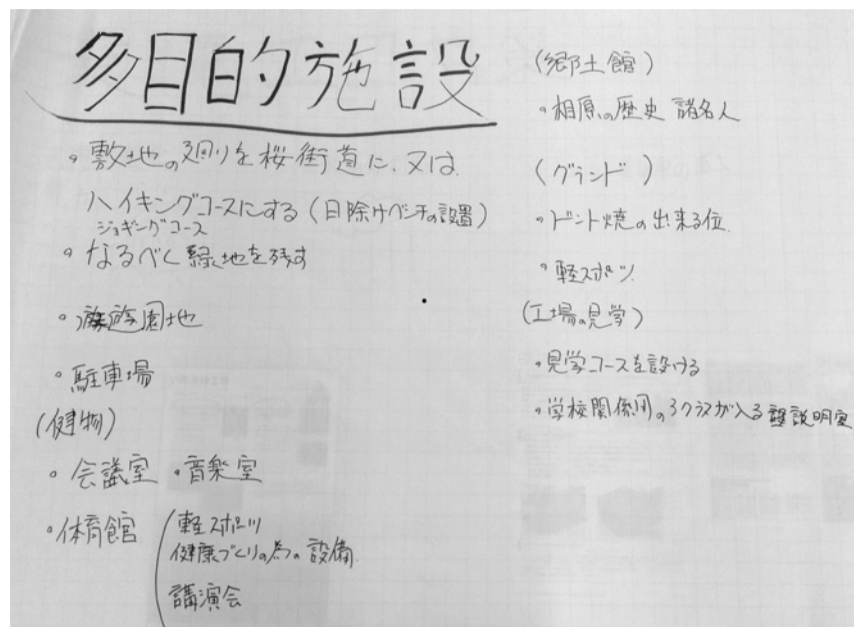 多目的施設
・敷地の廻りを桜街道に、又は
ハイキングコースにする(日除けベンチの設置)
ジョギングコース
・なるべく緑地を残す
・遊園地
・駐車場
(健物)
・会議室 ・音楽室
・体育館
軽スポーツ
健康づくりの為の設備
講演会
(郷土館)
・相原の歴史 諸名人
(グランド)
・ドント焼の出来る位
・軽スポーツ
(工場の見学)
・見学コースを設ける
・学校関係用の3クラスが入る説明室